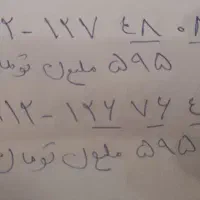 ۲ - ۱۲۷ ۴۸ ۰
۵۹۵ ملیون توما
۱۲ - ۱۲۶ ۷۶ ۴
۵۹۵ ملیون تومان